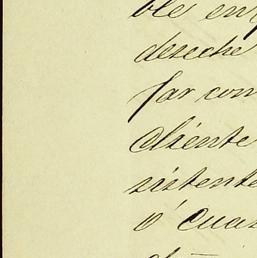 ble en
deseche
far con
cliente
sistente
ó cua